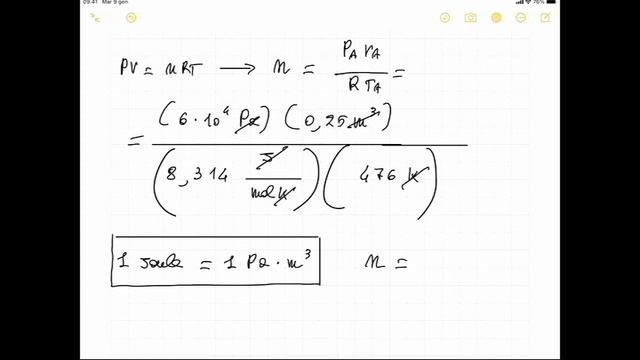 09:41 Mar 9 gen
76%
PV = nRT → n = P_A V_A / R T_A =
= (6 · 10⁴ Pa) (0,25 m³) / (8,314 J / mol K) (476 K)
1 Joule = 1 Pa · m³ n =